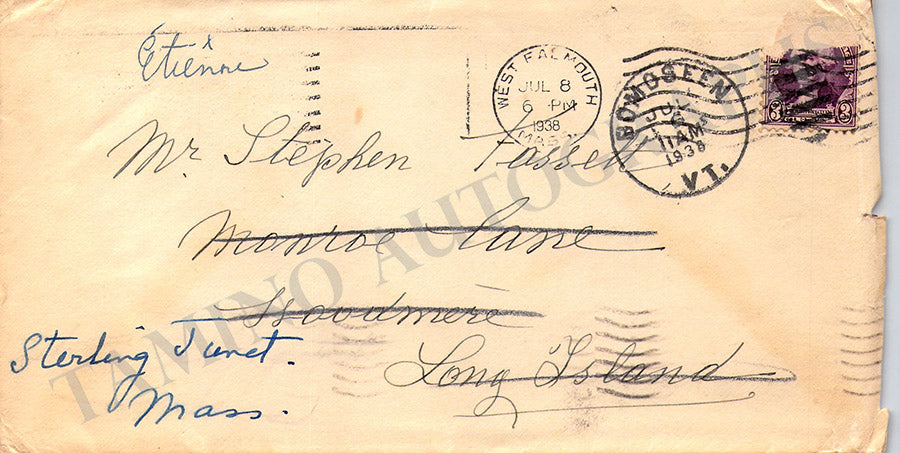 Étienne
WEST FALMOUTH
JUL 8
6 PM
1938
MASS.
BOMOSEEN
JUL
11AM
1938
VT.
3 3
Mr Stephen Fassett
Monroe Lane
Woodmere
Long Island
Sterling Junct.
Mass.
TAMINO AUTOGRAPHS